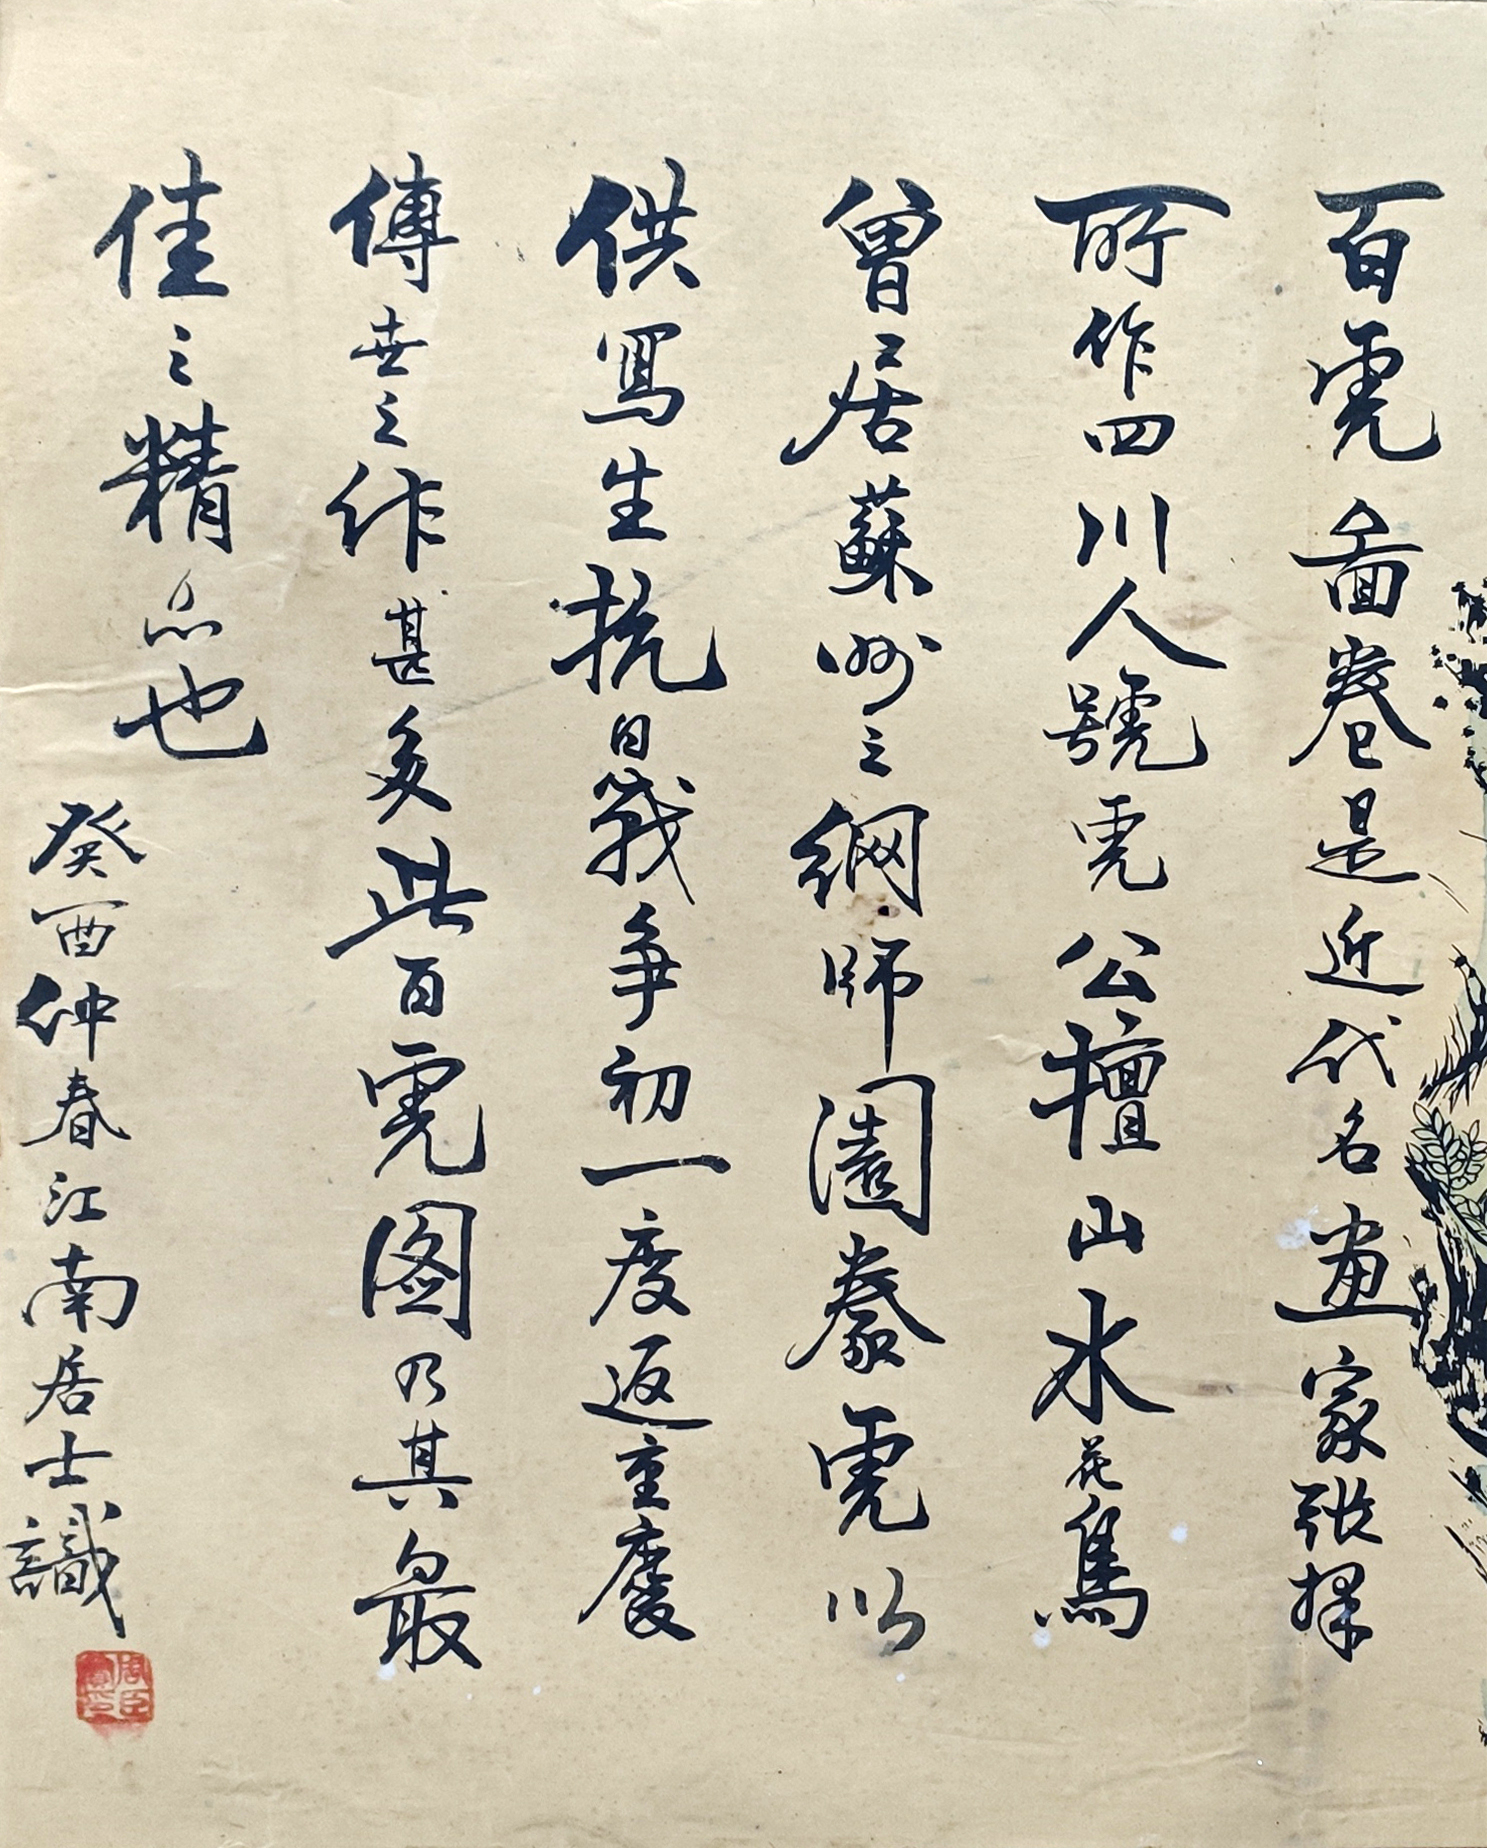 百虎啚卷是近代名画家張擇
所作四川人號虎公擅山水花鳥
曾居蘇州之網師園豢虎以
供寫生抗日戰爭初一度返重慶
傳世之作甚多此百虎图乃其最
佳之精品也
癸酉仲春江南居士識